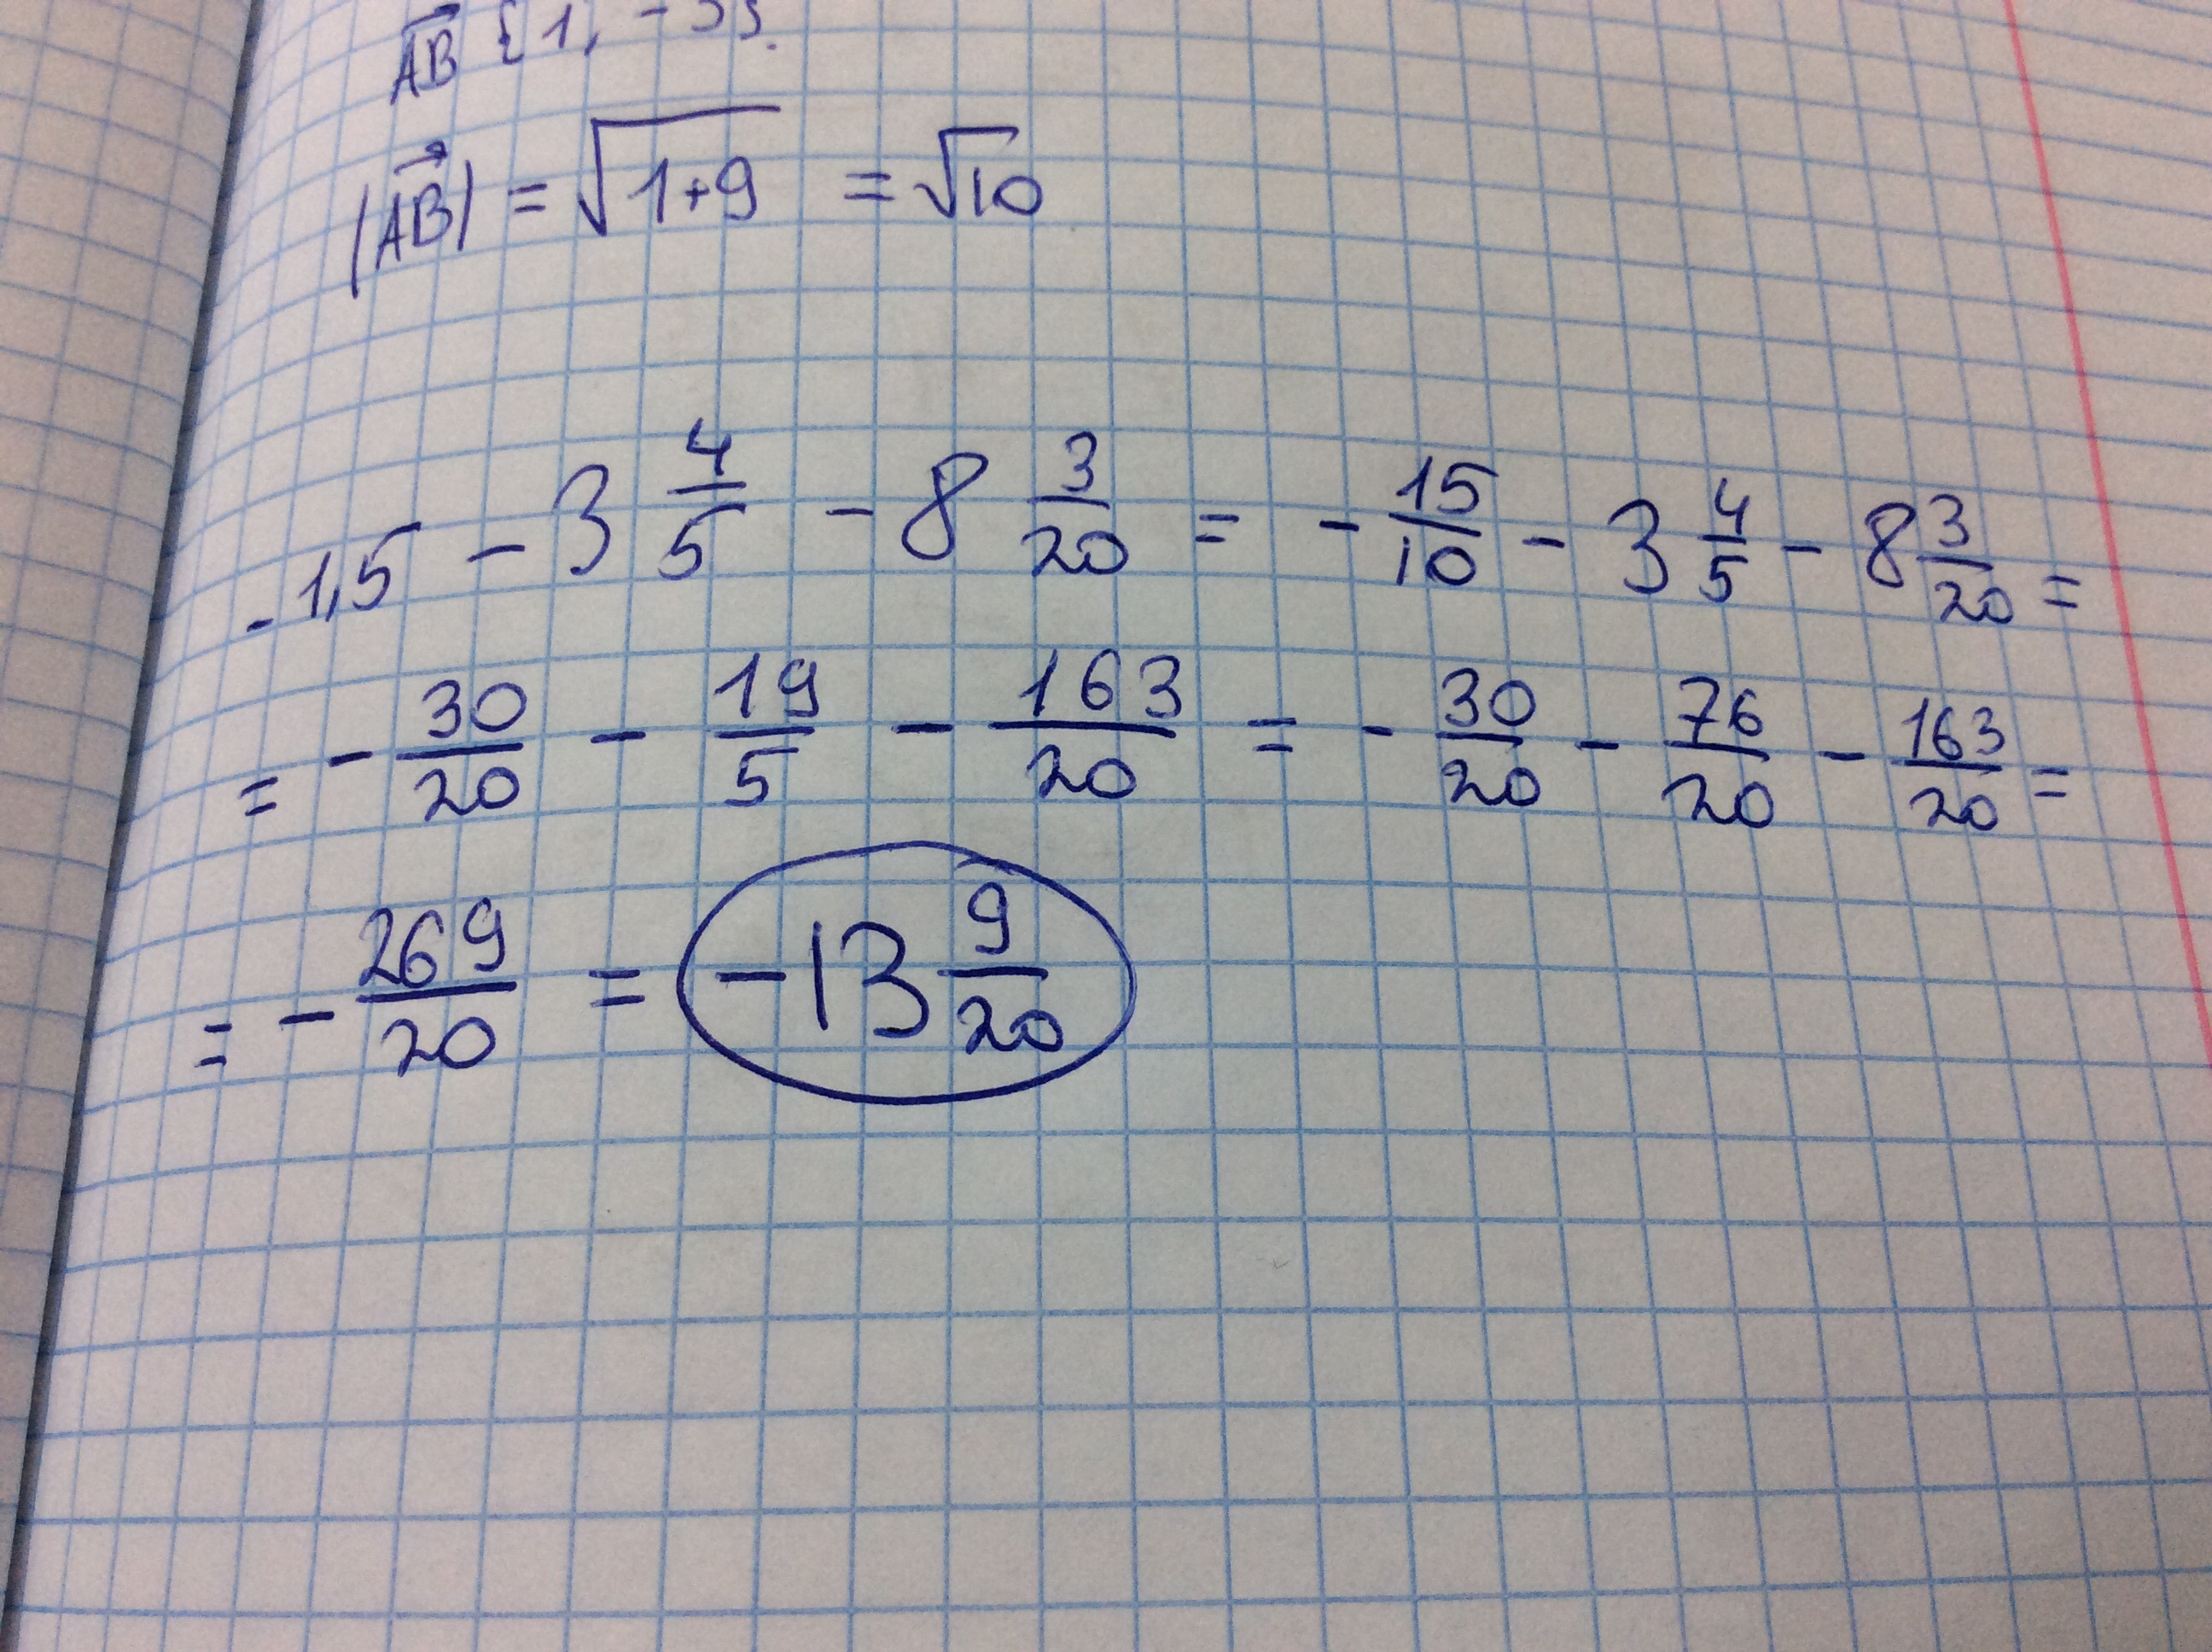 AB {1, -3}.
|AB| = √1+9 = √10
-1,5 - 3 4/5 - 8 3/20 = - 15/10 - 3 4/5 - 8 3/20 =
= - 30/20 - 19/5 - 163/20 = - 30/20 - 76/20 - 163/20 =
= - 269/20 = -13 9/20